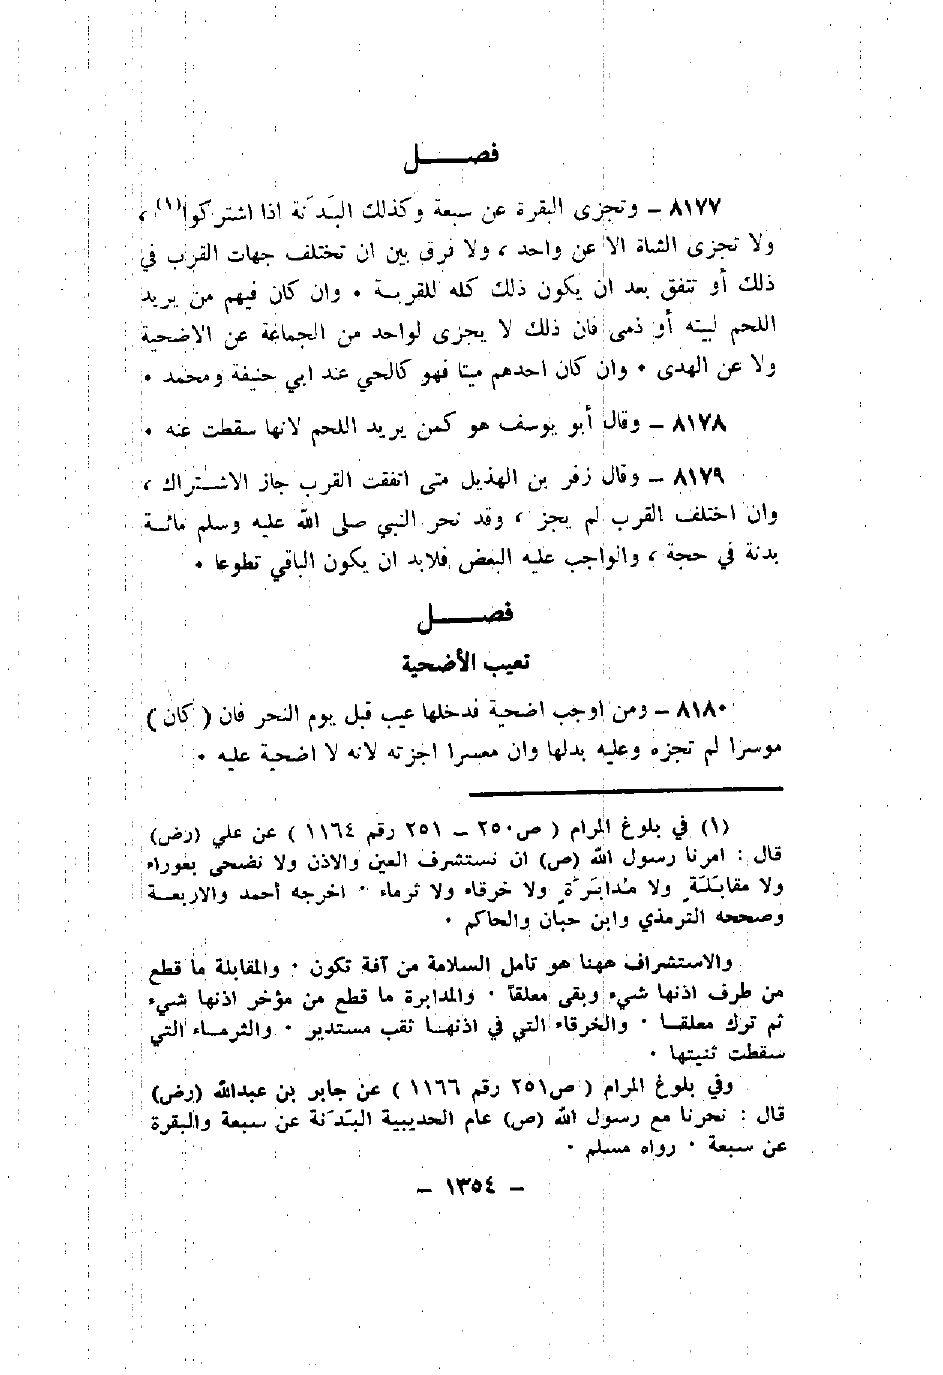 فصـــــل
٨١٧٧ – وتجزى البقرة عن سبعة وكذلك البَدَنة اذا اشتركوا(١) ،
ولا تجزى الشاة الا عن واحد ، ولا فرق بين ان تختلف جهات القرب في
ذلك أو تتفق بعد ان يكون ذلك كله للقربـة . وان كان فيهم من يريد
اللحم لبيته أو ذمى فان ذلك لا يجزى لواحد من الجماعة عن الاضحية
ولا عن الهدى . وان كان احدهم ميتا فهو كالحي عند ابي حنيفة ومحمد .
٨١٧٨ – وقال أبو يوسف هو كمن يريد اللحم لانها سقطت عنه .
٨١٧٩ – وقال زفر بن الهذيل متى اتفقت القرب جاز الاشـتراك ،
وان اختلف القرب لم يجز ، وقد نحر النبي صلى الله عليه وسلم مائـة
بدنة في حجة ، والواجب عليه البعض فلابد ان يكون الباقي تطوعا .
فصـــــل
تعيب الأضحية
٨١٨٠ – ومن اوجب اضحية فدخلها عيب قبل يوم النحر فان ( كان )
موسرا لم تجزه وعليه بدلها وان معسرا اجزته لانه لا اضحية عليه .
(١) في بلوغ المرام ( ص٢٥٠ – ٢٥١ رقم ١١٦٤ ) عن علي (رض)
قال : امرنا رسول الله (ص) ان نستشرف العين والاذن ولا نضحى بعوراء
ولا مقابَلَةٍ ولا مُدابَرَةٍ ولا خرقاء ولا ثرماء . اخرجه أحمد والاربعـة
وصححه الترمذي وابن حبان والحاكم .
والاستشراف ههنا هو تأمل السلامة من آفة تكون . والمقابلة ما قطع
من طرف اذنها شيء وبقى معلقآ . والمدابرة ما قطع من مؤخر اذنها شيء
ثم ترك معلقـا . والخرقاء التي في اذنهـا ثقب مستدير . والثرمـاء التي
سقطت ثنيتها .
وفي بلوغ المرام ( ص٢٥١ رقم ١١٦٦ ) عن جابر بن عبدالله (رض)
قال : نحرنا مع رسول الله (ص) عام الحديبية البَدَنة عن سبعة والبقرة
عن سبعة . رواه مسلم .
– ١٣٥٤ –